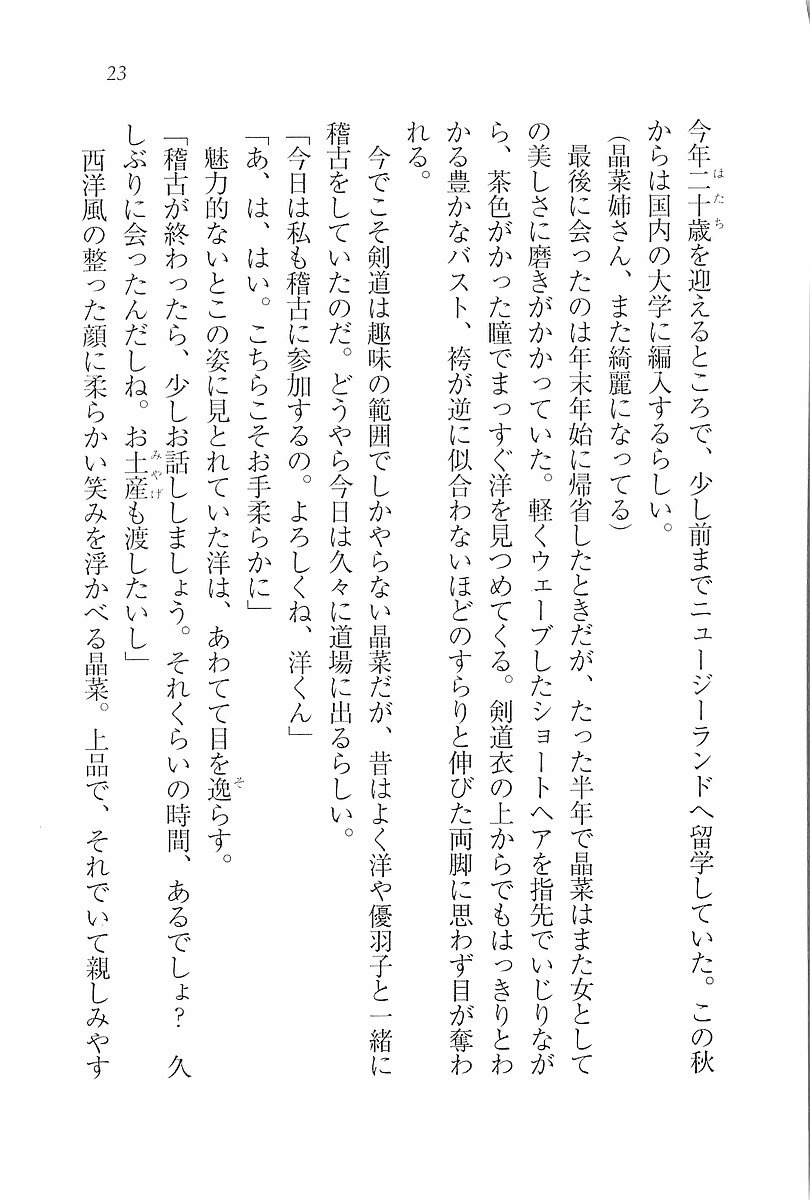 23
今年二十歳を迎えるところで、少し前までニュージーランドへ留学していた。この秋
からは国内の大学に編入するらしい。
(晶菜姉さん、また綺麗になってる)
　最後に会ったのは年末年始に帰省したときだが、たった半年で晶菜はまた女として
の美しさに磨きがかかっていた。軽くウェーブしたショートヘアを指先でいじりなが
ら、茶色がかった瞳でまっすぐ洋を見つめてくる。剣道衣の上からでもはっきりとわ
かる豊かなバスト、袴が逆に似合わないほどのすらりと伸びた両脚に思わず目が奪わ
れる。
　今でこそ剣道は趣味の範囲でしかやらない晶菜だが、昔はよく洋や優羽子と一緒に
稽古をしていたのだ。どうやら今日は久々に道場に出るらしい。
「今日は私も稽古に参加するの。よろしくね、洋くん」
「あ、は、はい。こちらこそお手柔らかに」
　魅力的ないとこの姿に見とれていた洋は、あわてて目を逸らす。
「稽古が終わったら、少しお話ししましょう。それくらいの時間、あるでしょ？　久
しぶりに会ったんだしね。お土産も渡したいし」
　西洋風の整った顔に柔らかい笑みを浮かべる晶菜。上品で、それでいて親しみやす
はたち
そ
みやげ